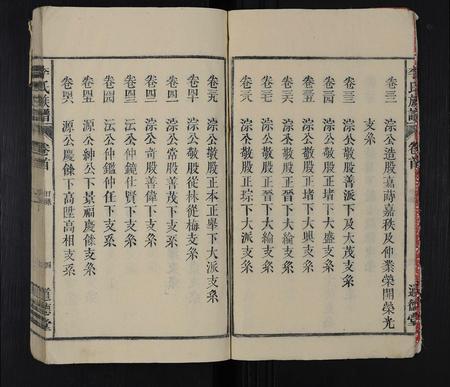 卷三二 淙公造股嘉蒔嘉秩及仲業榮開榮光
支系
卷三三 淙公敬股善派下及大茂支系
卷三四 淙公敬股正培下大盛支系
卷三五 淙公敬股正培下大興支系
卷三六 淙公敬股正晉下大綸支系
卷三七 淙公敬股正晉下大綸支系
卷三八 淙公敬股正琮下大派支系
卷三九 淙公敬股正本正舉下大派支系
卷四十 淙公敬股從林從梅支系
卷四一 淙公常股善茂下支系
卷四二 淙公奇股善偉下支系
卷四三 沄公仲鏡仕賢下支系
卷四四 沄公仲鑑仲任下支系
卷四五 源公紳公下景福慶條支系
卷四六 源公慶餘下高陞高相支系
李氏族譜
卷首
四
道德堂